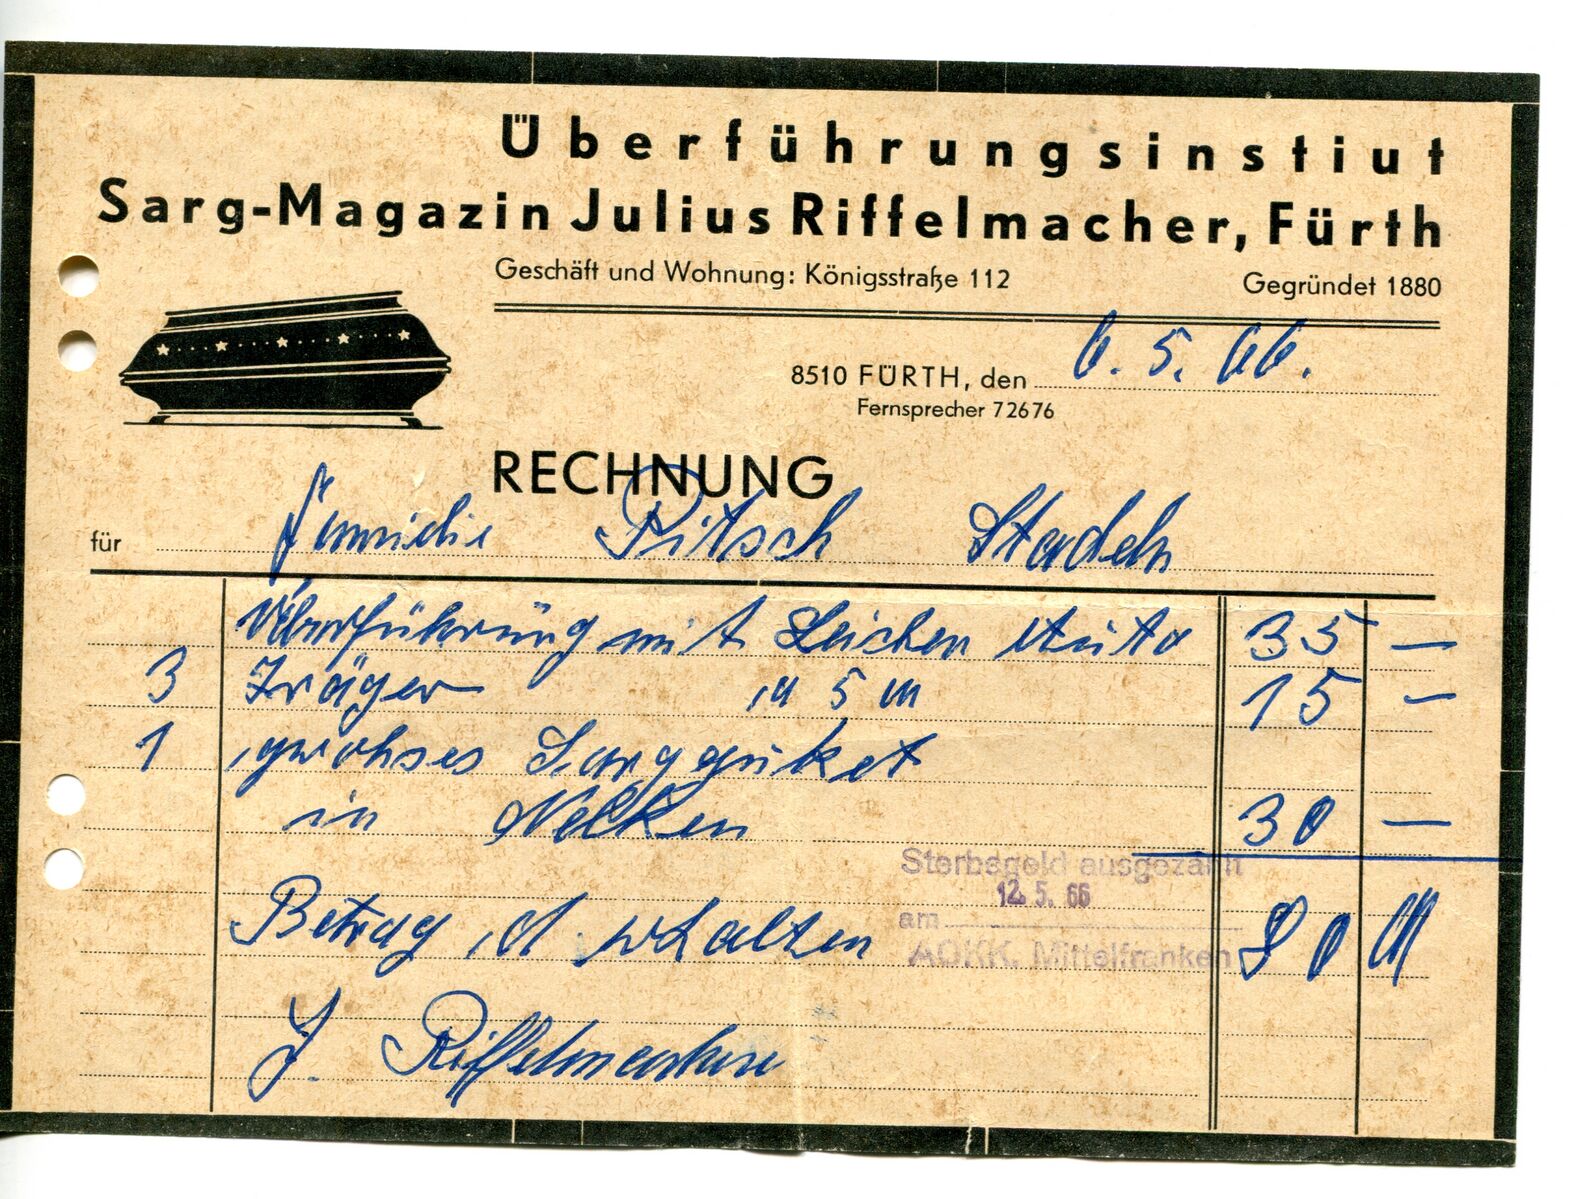 Überführungsinstiut
Sarg-Magazin Julius Riffelmacher, Fürth
Geschäft und Wohnung: Königsstraße 112 Gegründet 1880
8510 FÜRTH, den 6. 5. 66.
Fernsprecher 72676
RECHNUNG
für Familie Pitsch Stadeln
Überführung mit Leichen Auto 35 —
3 Träger a 5 M 15 —
1 grohses Sargbuket
in Nelken 30 —
Sterbegeld ausgezahlt
12. 5. 66
am
AOKK. Mittelfranken
Betrag d. erhalten 80 M
J. Riffelmacher